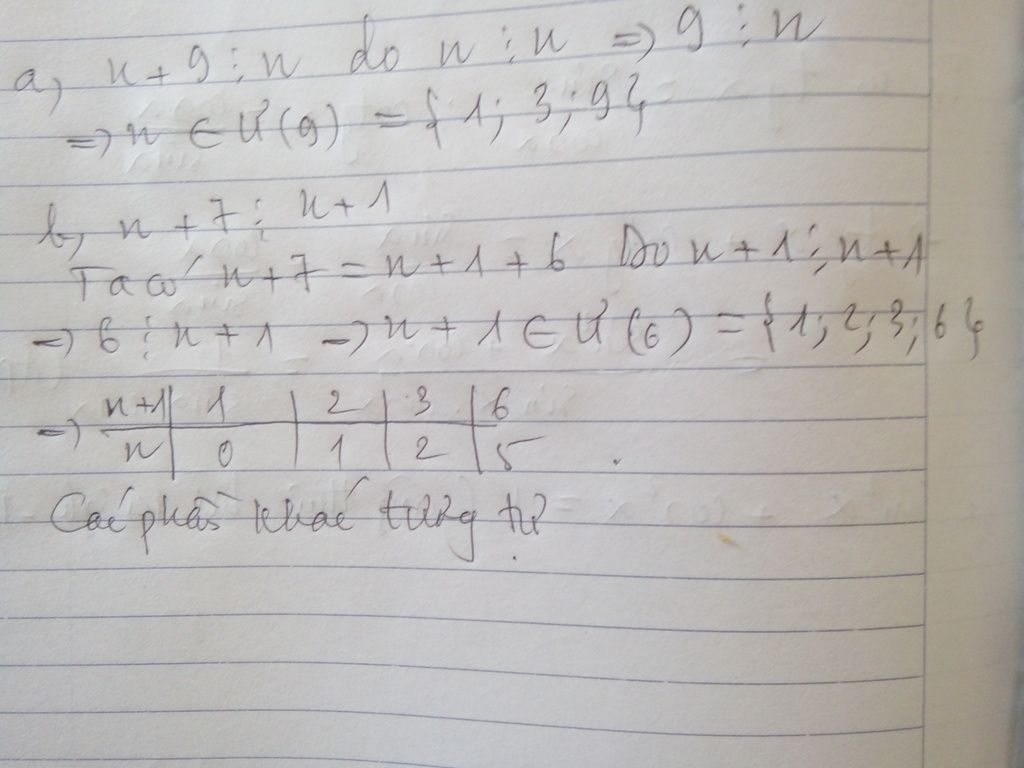 a, n + 9 ⋮ n do n ⋮ n => 9 ⋮ n
=> n ∈ Ư(9) = {1; 3; 9}
b, n + 7 ⋮ n + 1
Ta có n + 7 = n + 1 + 6 Do n + 1 ⋮ n + 1
=> 6 ⋮ n + 1 => n + 1 ∈ Ư(6) = {1; 2; 3; 6}
=> n+1 | 1 | 2 | 3 | 6
n | 0 | 1 | 2 | 5
Các phần khác tương tự